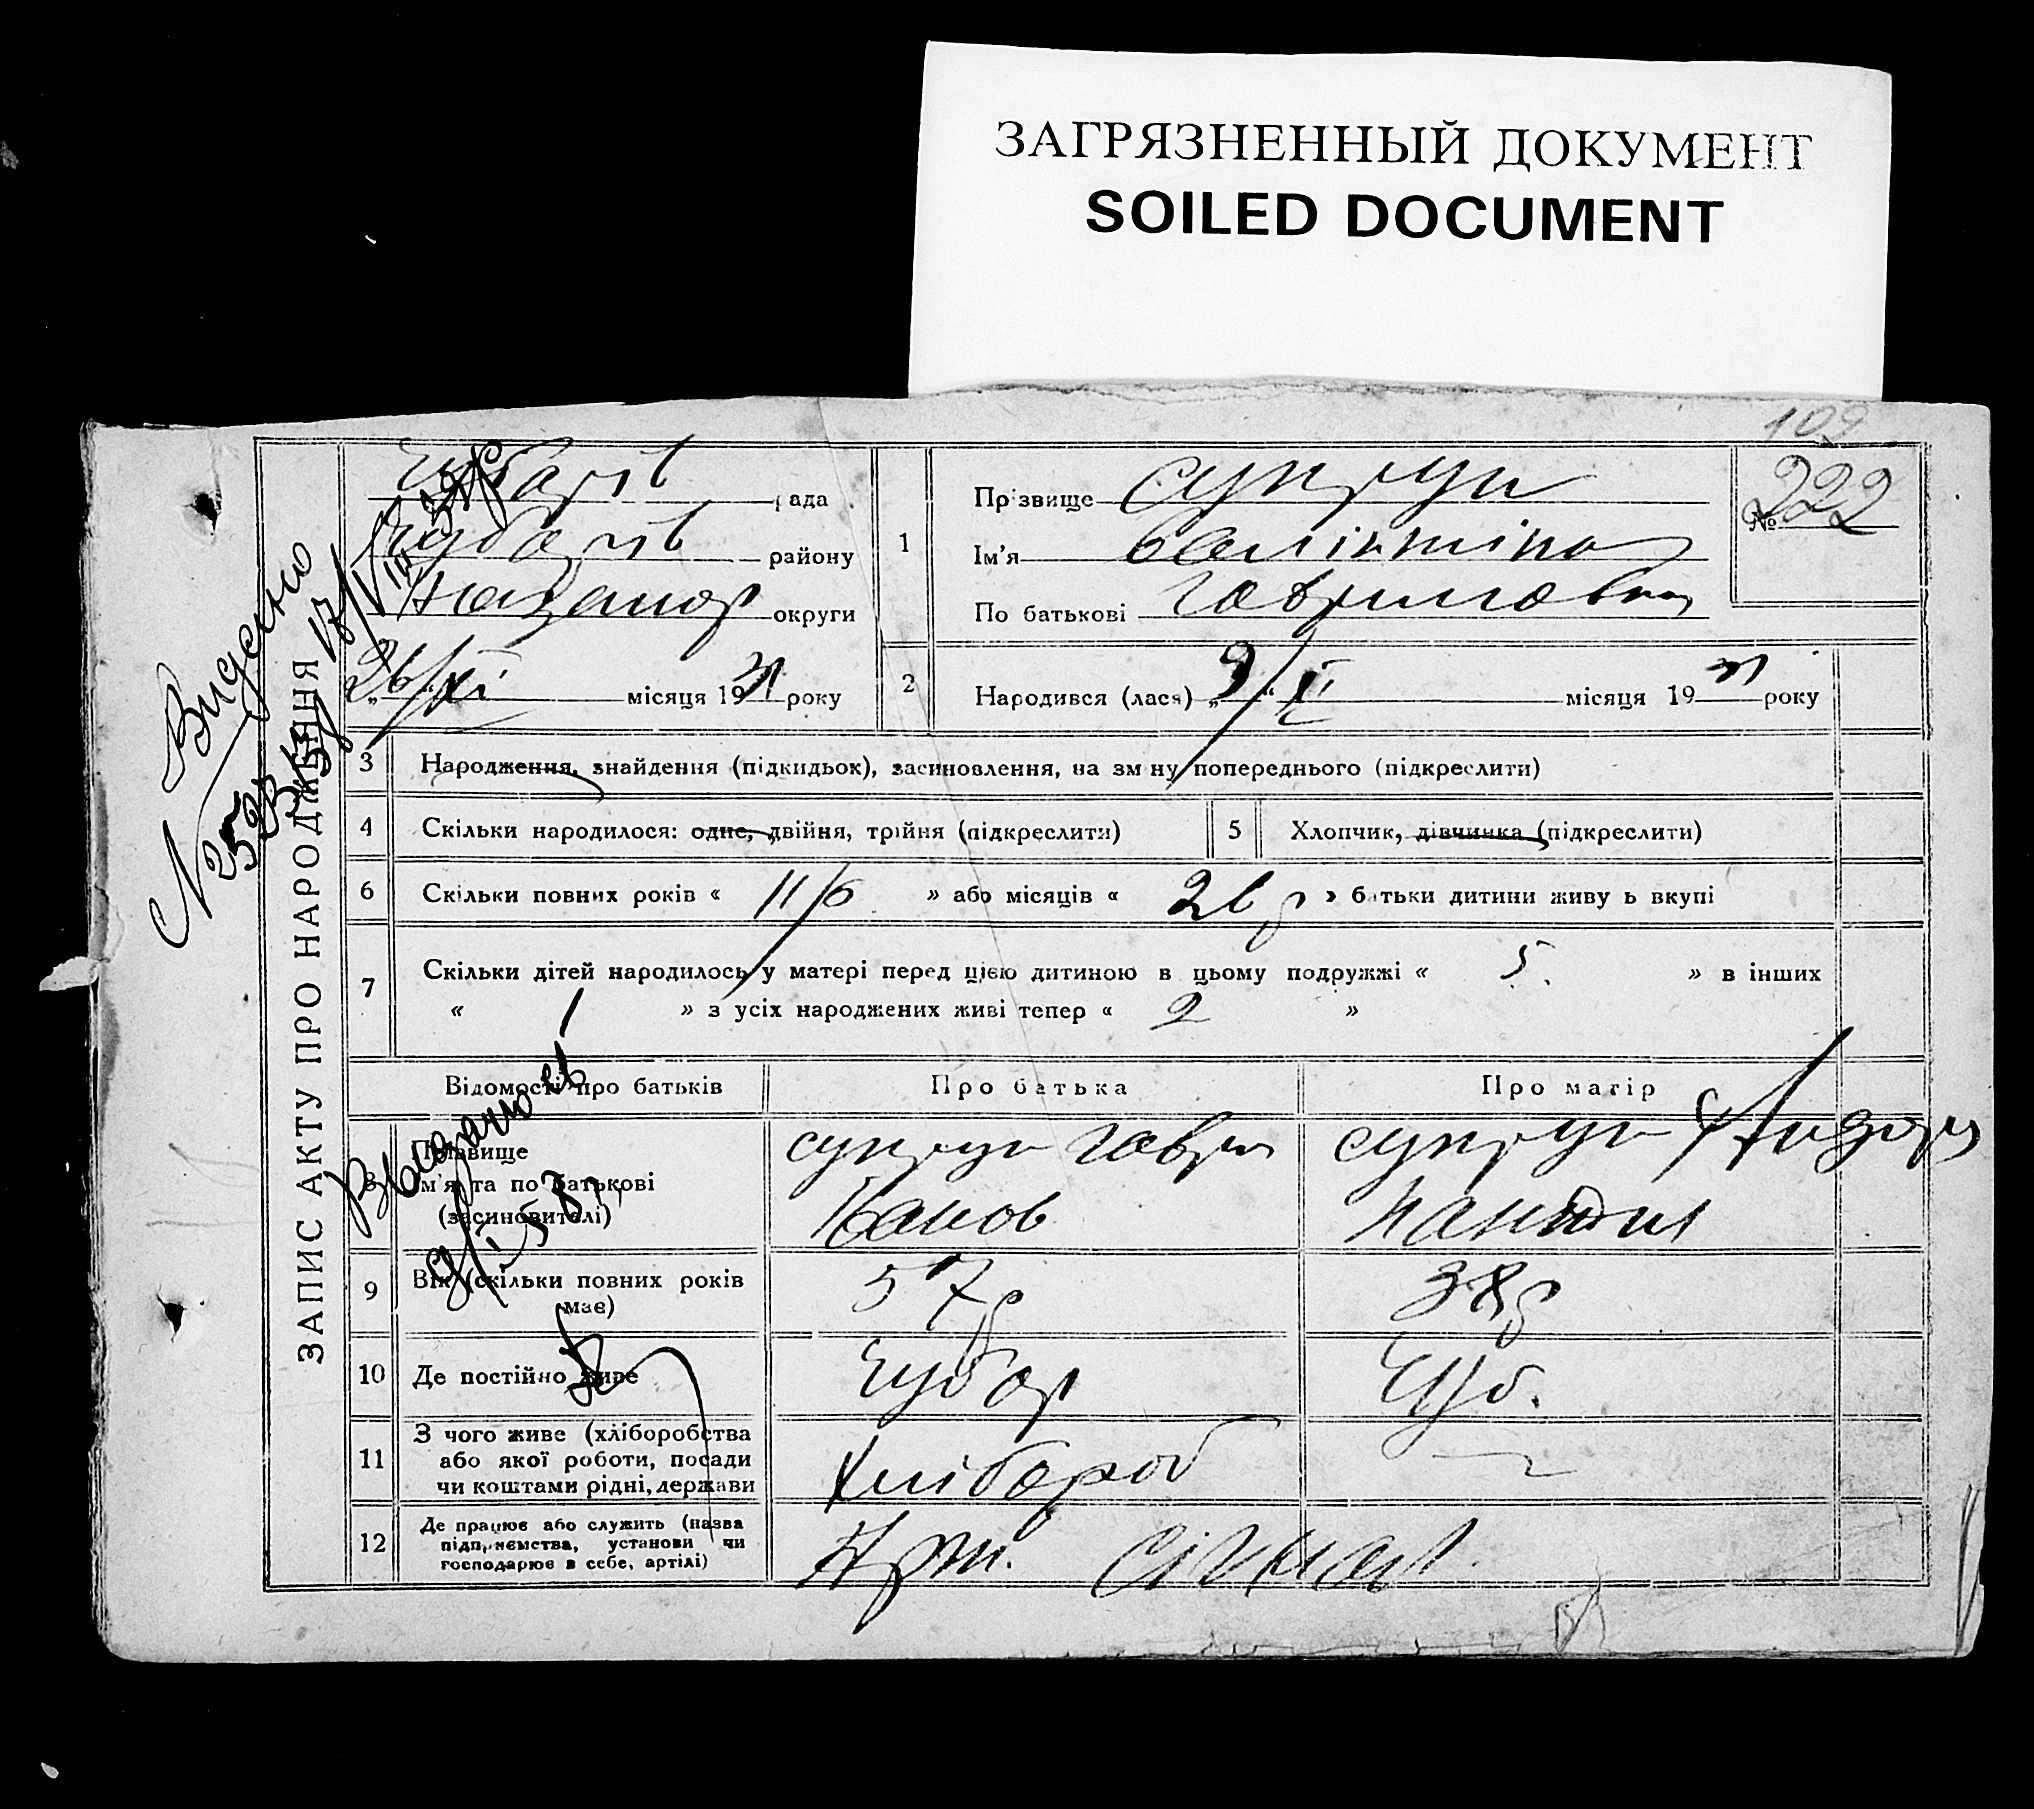 ЗАГРЯЗНЕННЫЙ ДОКУМЕНТ
SOILED DOCUMENT
109
ЗАПИС АКТУ ПРО НАРОДЖЕННЯ
Видено
Чубарів рада
Чубарів району
округи
26/XI місяця 1931 року
1
Прізвище Супрун
Ім'я Валінтіна
По батькові Гавриловна
№ 222
2
Народився (лася) „9“ XI місяця 1931 року
3 Народження, знайдення (підкидьок), засиновлення, на зміну попереднього (підкреслити)
4 Скільки народилося: одне, двійня, трійня (підкреслити)
5 Хлопчик, дівчинка (підкреслити)
6 Скільки повних років « 11 » або місяців « » батьки дитини живуть вкупі
7 Скільки дітей народилось у матері перед цією дитиною в цьому подружжі « 5. » в інших
« » з усіх народжених живі тепер « 2 »
Відомості про батьків Про батька Про матір
8 Прізвище
Ім'я та по батькові
(засиновителі)
Супрун Гаврил
Супрун
9 Вік (скільки повних років має) 57р 38р
10 Де постійно живе Чубар Чуб.
11 З чого живе (хліборобства
або якої роботи, посади
чи коштами рідні, держави
Хлібороб
12 Де працює або служить (назва
підприємства, установи чи
господарює в себе, артілі)
Арт.